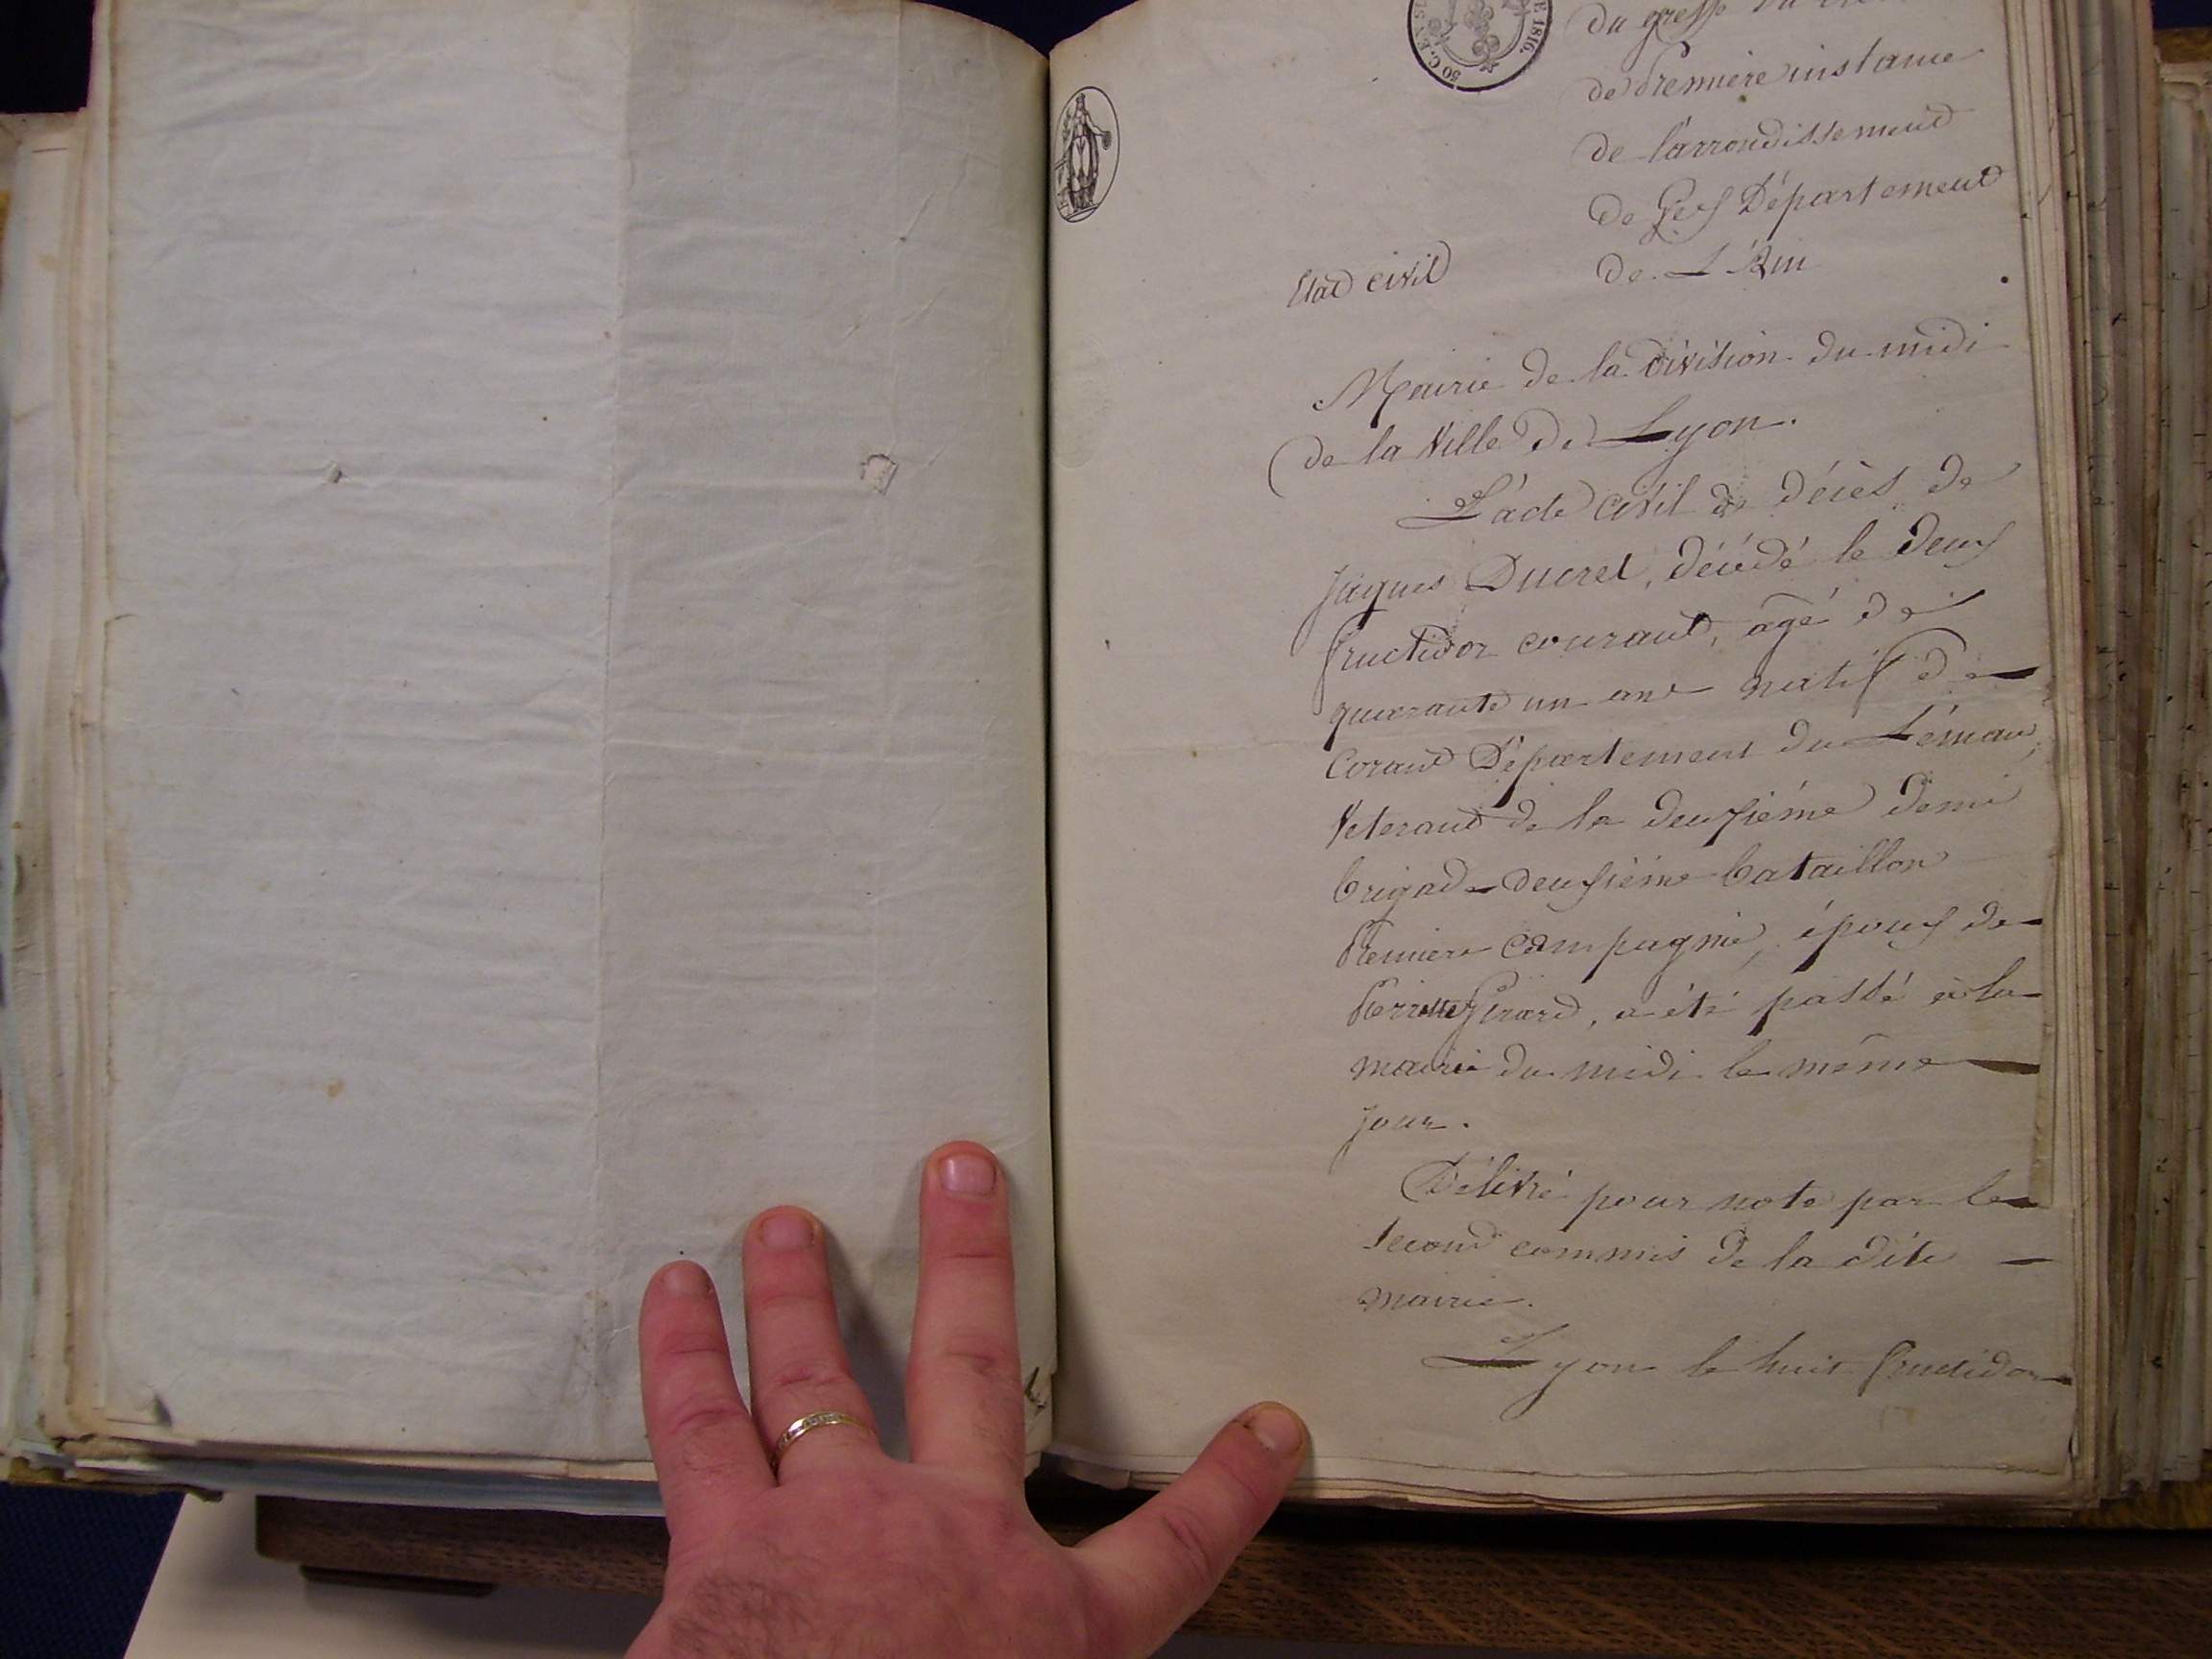 50 C. EN S
E 1816.
du greffe du
de Premiere instance
de l'arrondissement
de Gex Département
de L'Ain
Etat civil
Mairie de la division du midi
de la Ville de Lyon.
L'acte civil de décès de
Jaques Ducret, décédé le deux
fructidor courant, âgé de
quarante un ans natif de
Corand Département du Léman,
Veterand de la deuxième demi
brigade deuxième bataillon
Premiere Compagnie, époux de
Pierrette Girard, a été passé à la
mairie du midi le même
jour.
Délivré pour note par le
second commis de la dite
mairie.
Lyon le huit fructidor